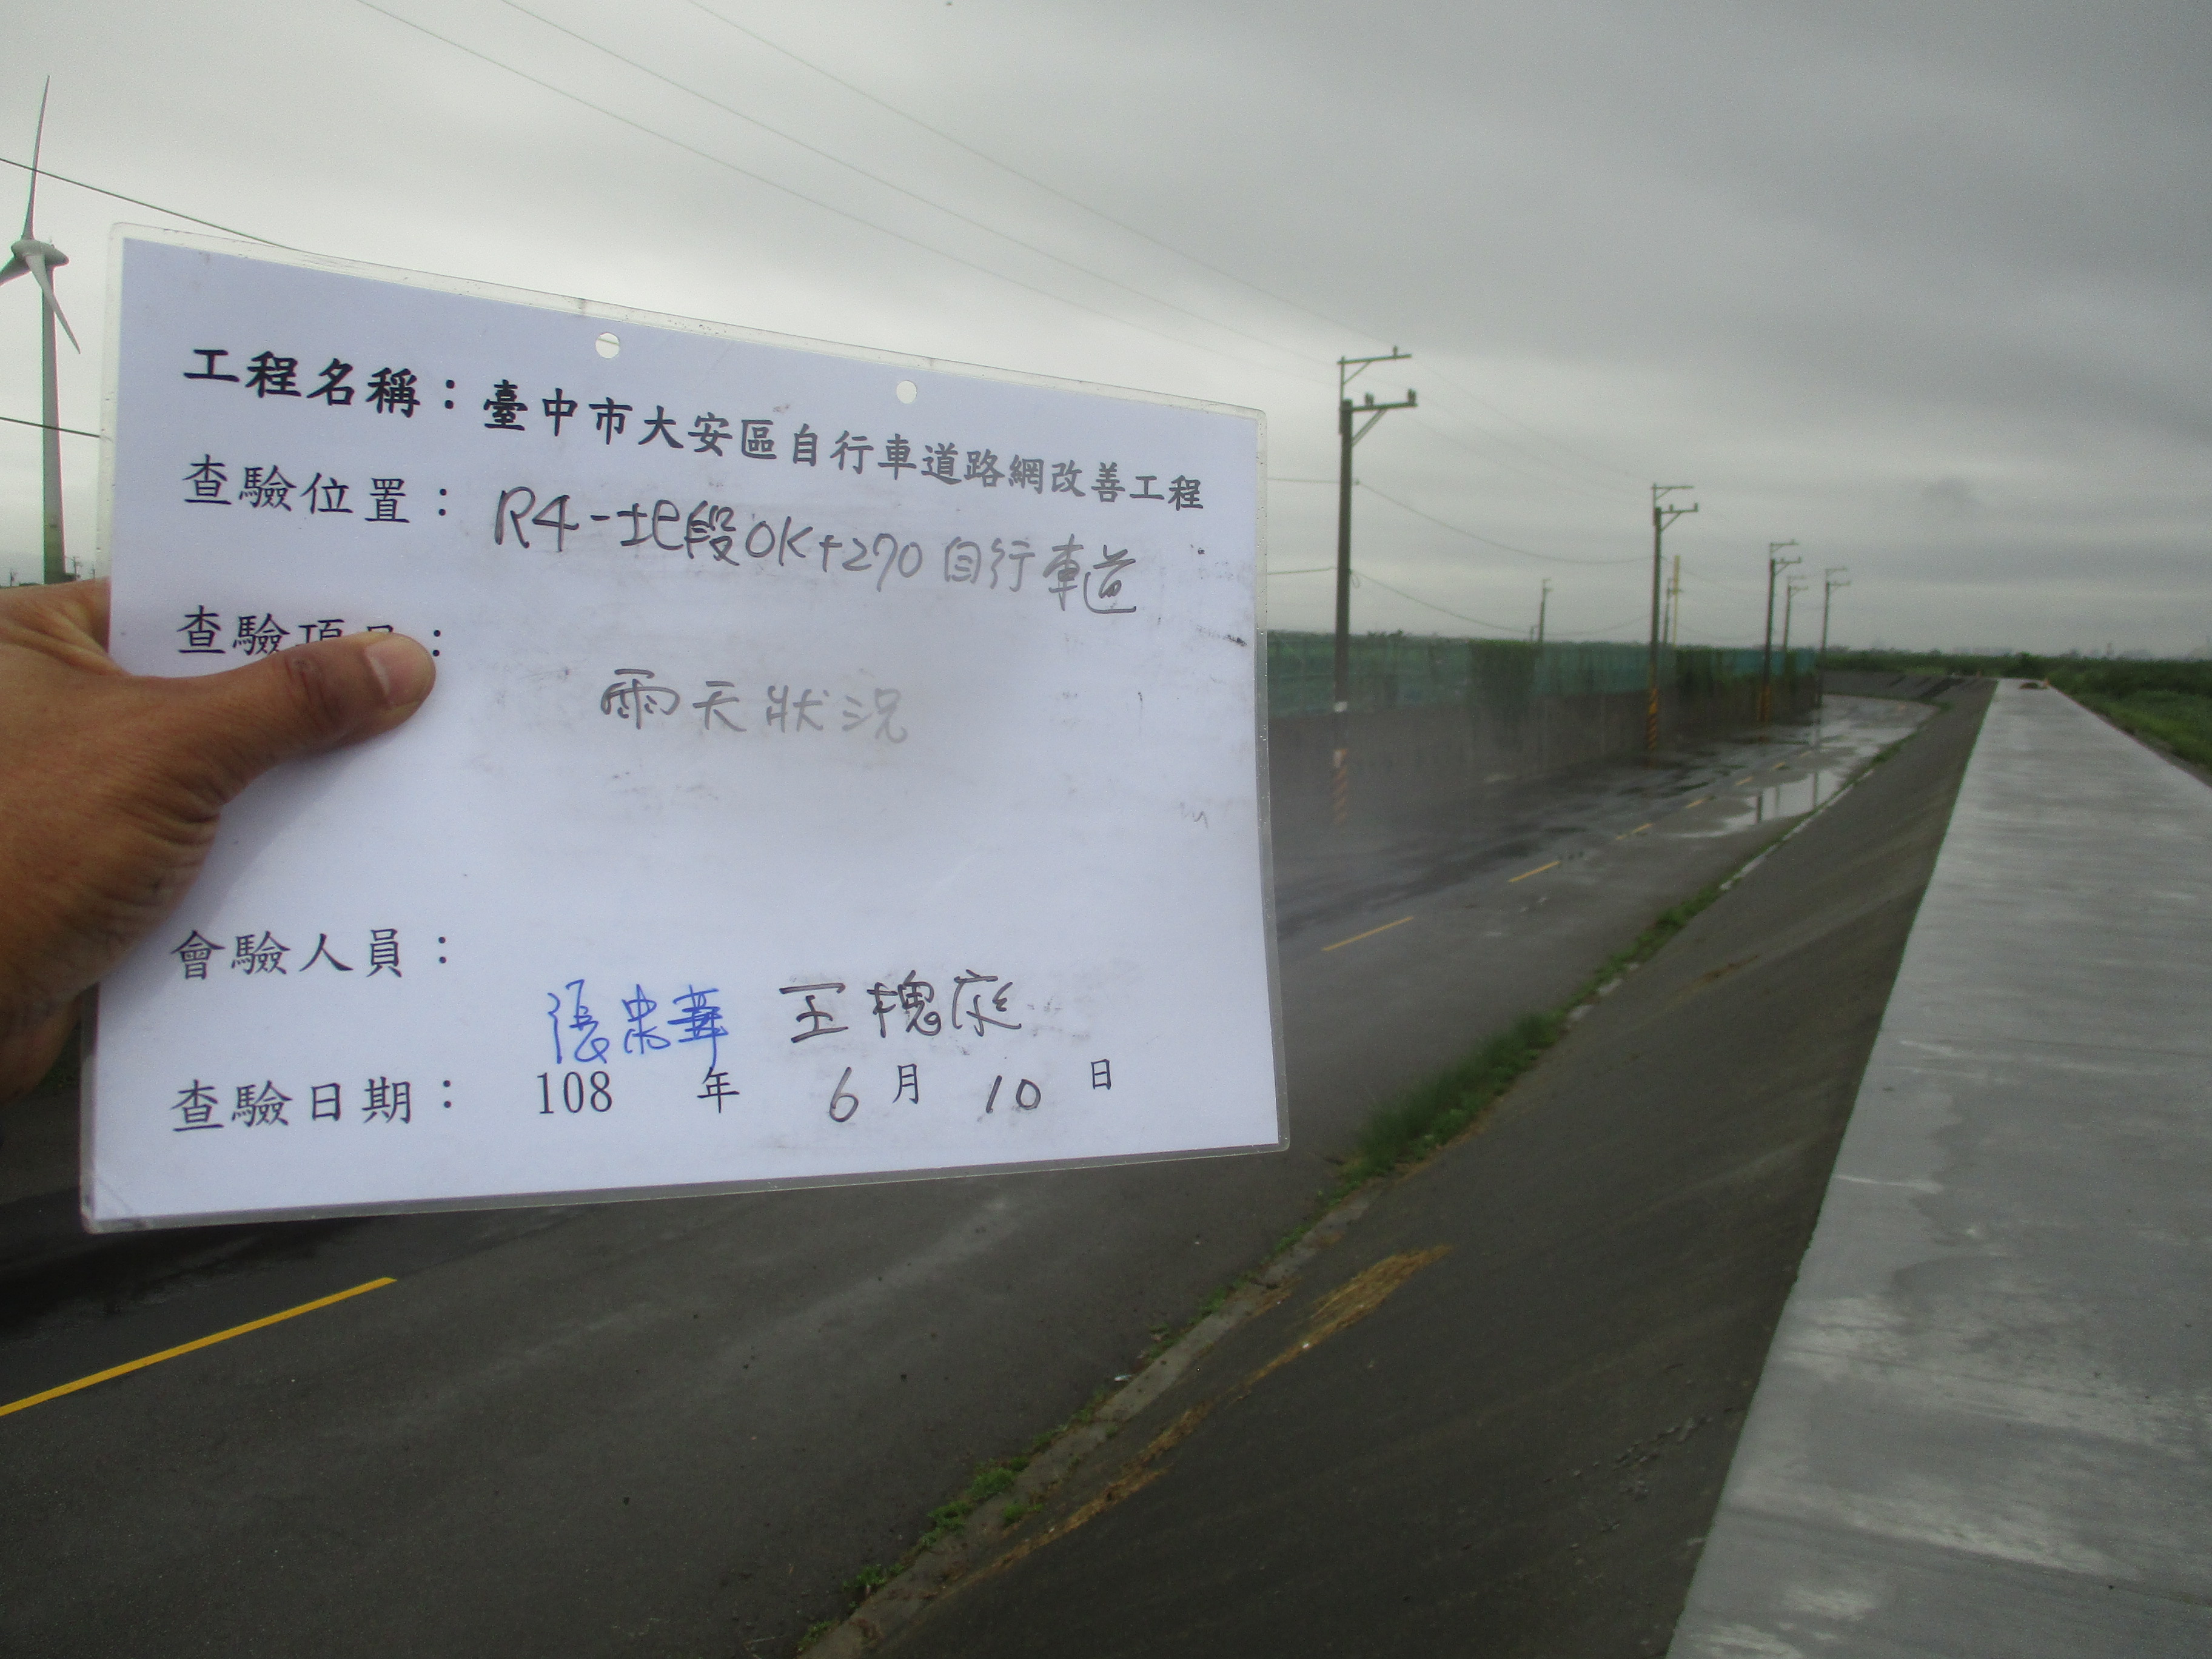 工程名稱：臺中市大安區自行車道路網改善工程
查驗位置：R4-北段0K+270自行車道
查驗項目：
雨天狀況
會驗人員：
張忠華 王槐庭
查驗日期：108 年 6 月 10 日